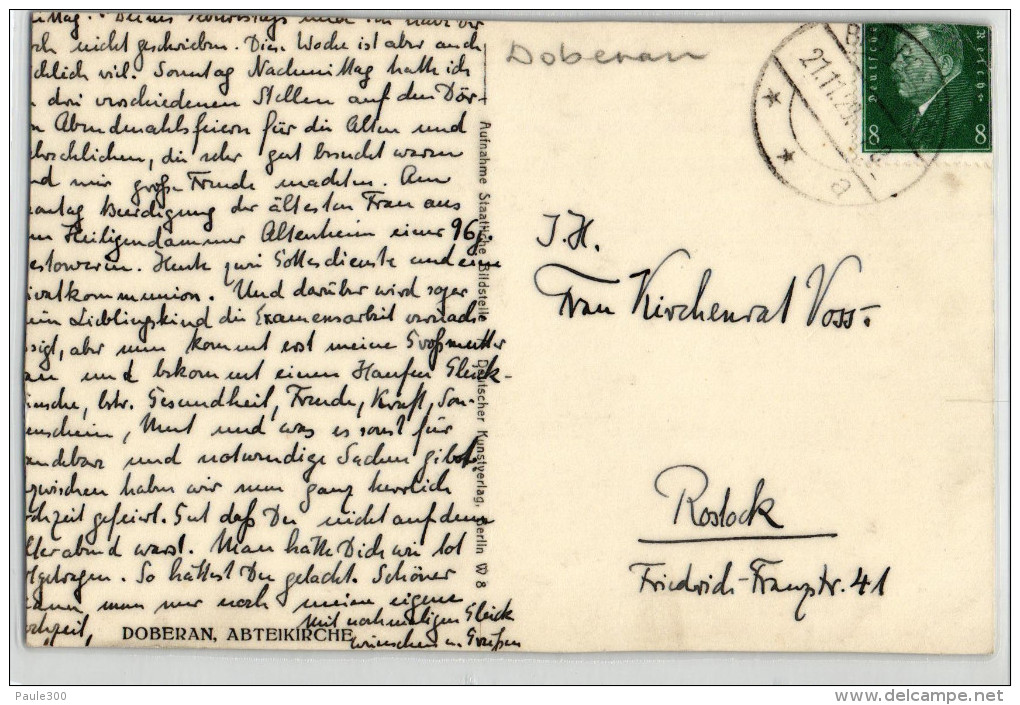 Mag. Deines Geburtstags und ich habe Dir
nicht geschrieben. Diese Woche ist aber auch
viel. Sonntag Nachmittag hatte ich
drei verschiedenen Stellen auf den Dör-
Abendmahlsfeiern für die Alten und
die sehr gut besucht waren
nd mir große Freude machten. Am
ontag Beerdigung der ältesten Frau aus
Heiligendammer Altenheim einer 96j.
Heute zwei Gottesdienste und eine
ivatkommunion. Und darüber wird sogar
ein Lieblingskind die Examensarbeit vernach-
sigt, aber nun kommt erst meine Großmutter
an und bekommt einen Haufen Glück-
ünsche, bstr. Gesundheit, Freude, Kraft, Son-
enschein, Mut und was es sonst für
und notwendige Sachen gibt.
zwischen haben wir nun ganz herrlich
chzeit gefeiert. Gut daß Du nicht auf dem
lterabend warst. Man hätte Dich wie tot
tgetragen. So hättest Du gelacht. Schöner
kann man nur noch meine eigene
chzeit,
Mit nochmaligen Glück
wünschen u. Grüßen
DOBERAN, ABTEIKIRCHE
Aufnahme Staatliche Bildstelle Deutscher Kunstverlag, Berlin W 8
Doberan
21.11.
a
Deutsches Reich
8 8
I.H.
Frau Kirchenrat Voss.
Rostock
Friedrich-Franzstr. 41
Paule300
http://www.delcampe.net